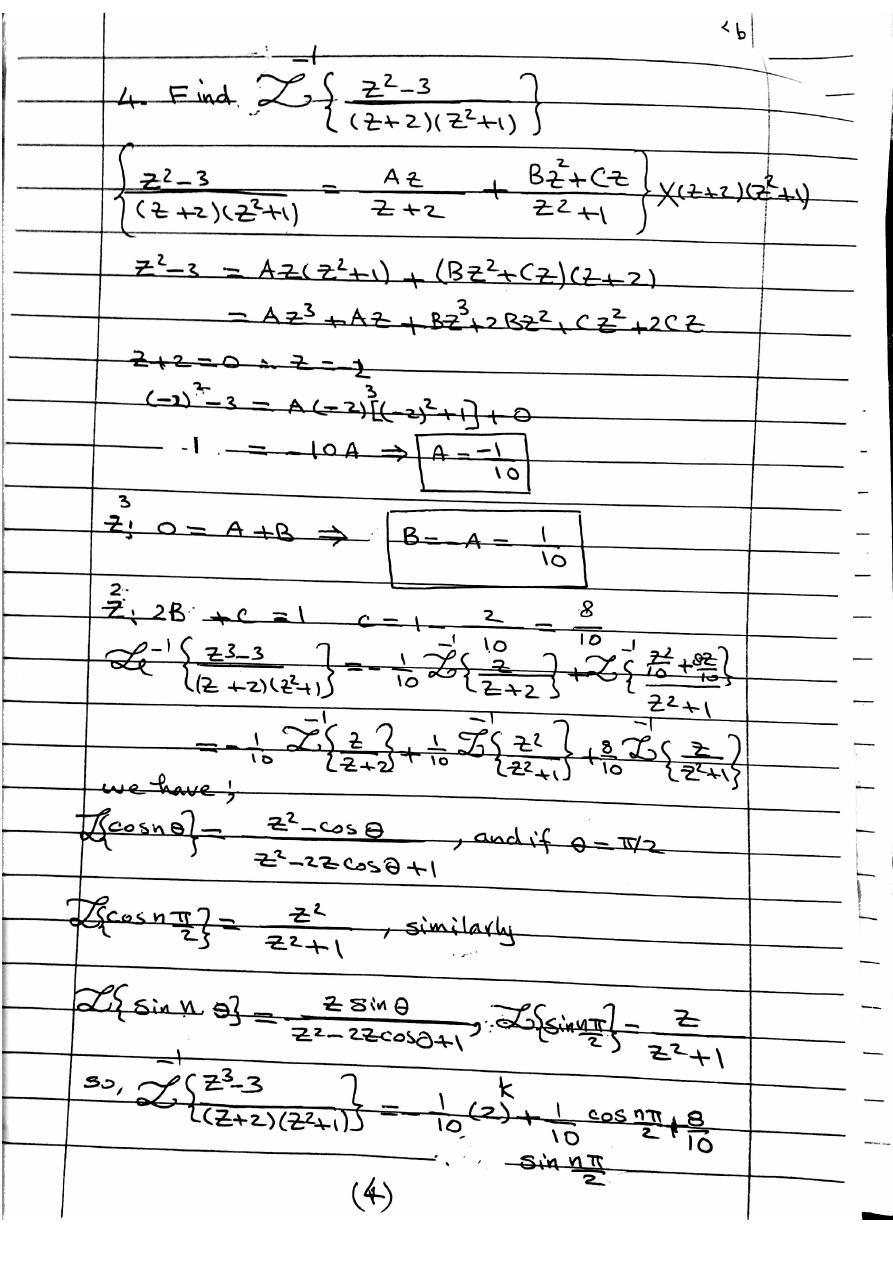 <b
4. Find Z⁻¹{ (z²-3) / ((z+2)(z²+1)) }
{ (z²-3) / ((z+2)(z²+1)) = Az / (z+2) + (Bz²+Cz) / (z²+1) } X(z+2)(z²+1)
z²-3 = Az(z²+1) + (Bz²+Cz)(z+2)
= Az³ + Az + Bz³+2Bz²+Cz²+2Cz
z+2=0 ∴ z=-2
(-2)²-3 = A(-2)³[(-2)²+1]+0
-1 = -10A ⇒ A = -1/10
z³: 0 = A+B ⇒ B=-A = 1/10
z²: 2B + c = 1 c = 1 - 2/10 = 8/10
Z⁻¹{ (z³-3) / ((z+2)(z²+1)) } = -1/10 Z⁻¹{ z/(z+2) } + Z⁻¹{ (z²/10 + 8z/10) / (z²+1) }
= -1/10 Z⁻¹{ z/(z+2) } + 1/10 Z⁻¹{ z²/(z²+1) } + 8/10 Z⁻¹{ z/(z²+1) }
we have;
Z{cosnθ} = (z²-cosθ) / (z²-2zcosθ+1), and if θ = π/2
Z{cos nπ/2} = z²/(z²+1), similarly
Z{sin n θ} = z sinθ / (z²-2zcosθ+1), ∴ Z{sin nπ/2} = z/(z²+1)
so, Z⁻¹{ (z³-3) / ((z+2)(z²+1)) } = -1/10 (2)ᵏ + 1/10 cos nπ/2 + 8/10
sin nπ/2
(4)